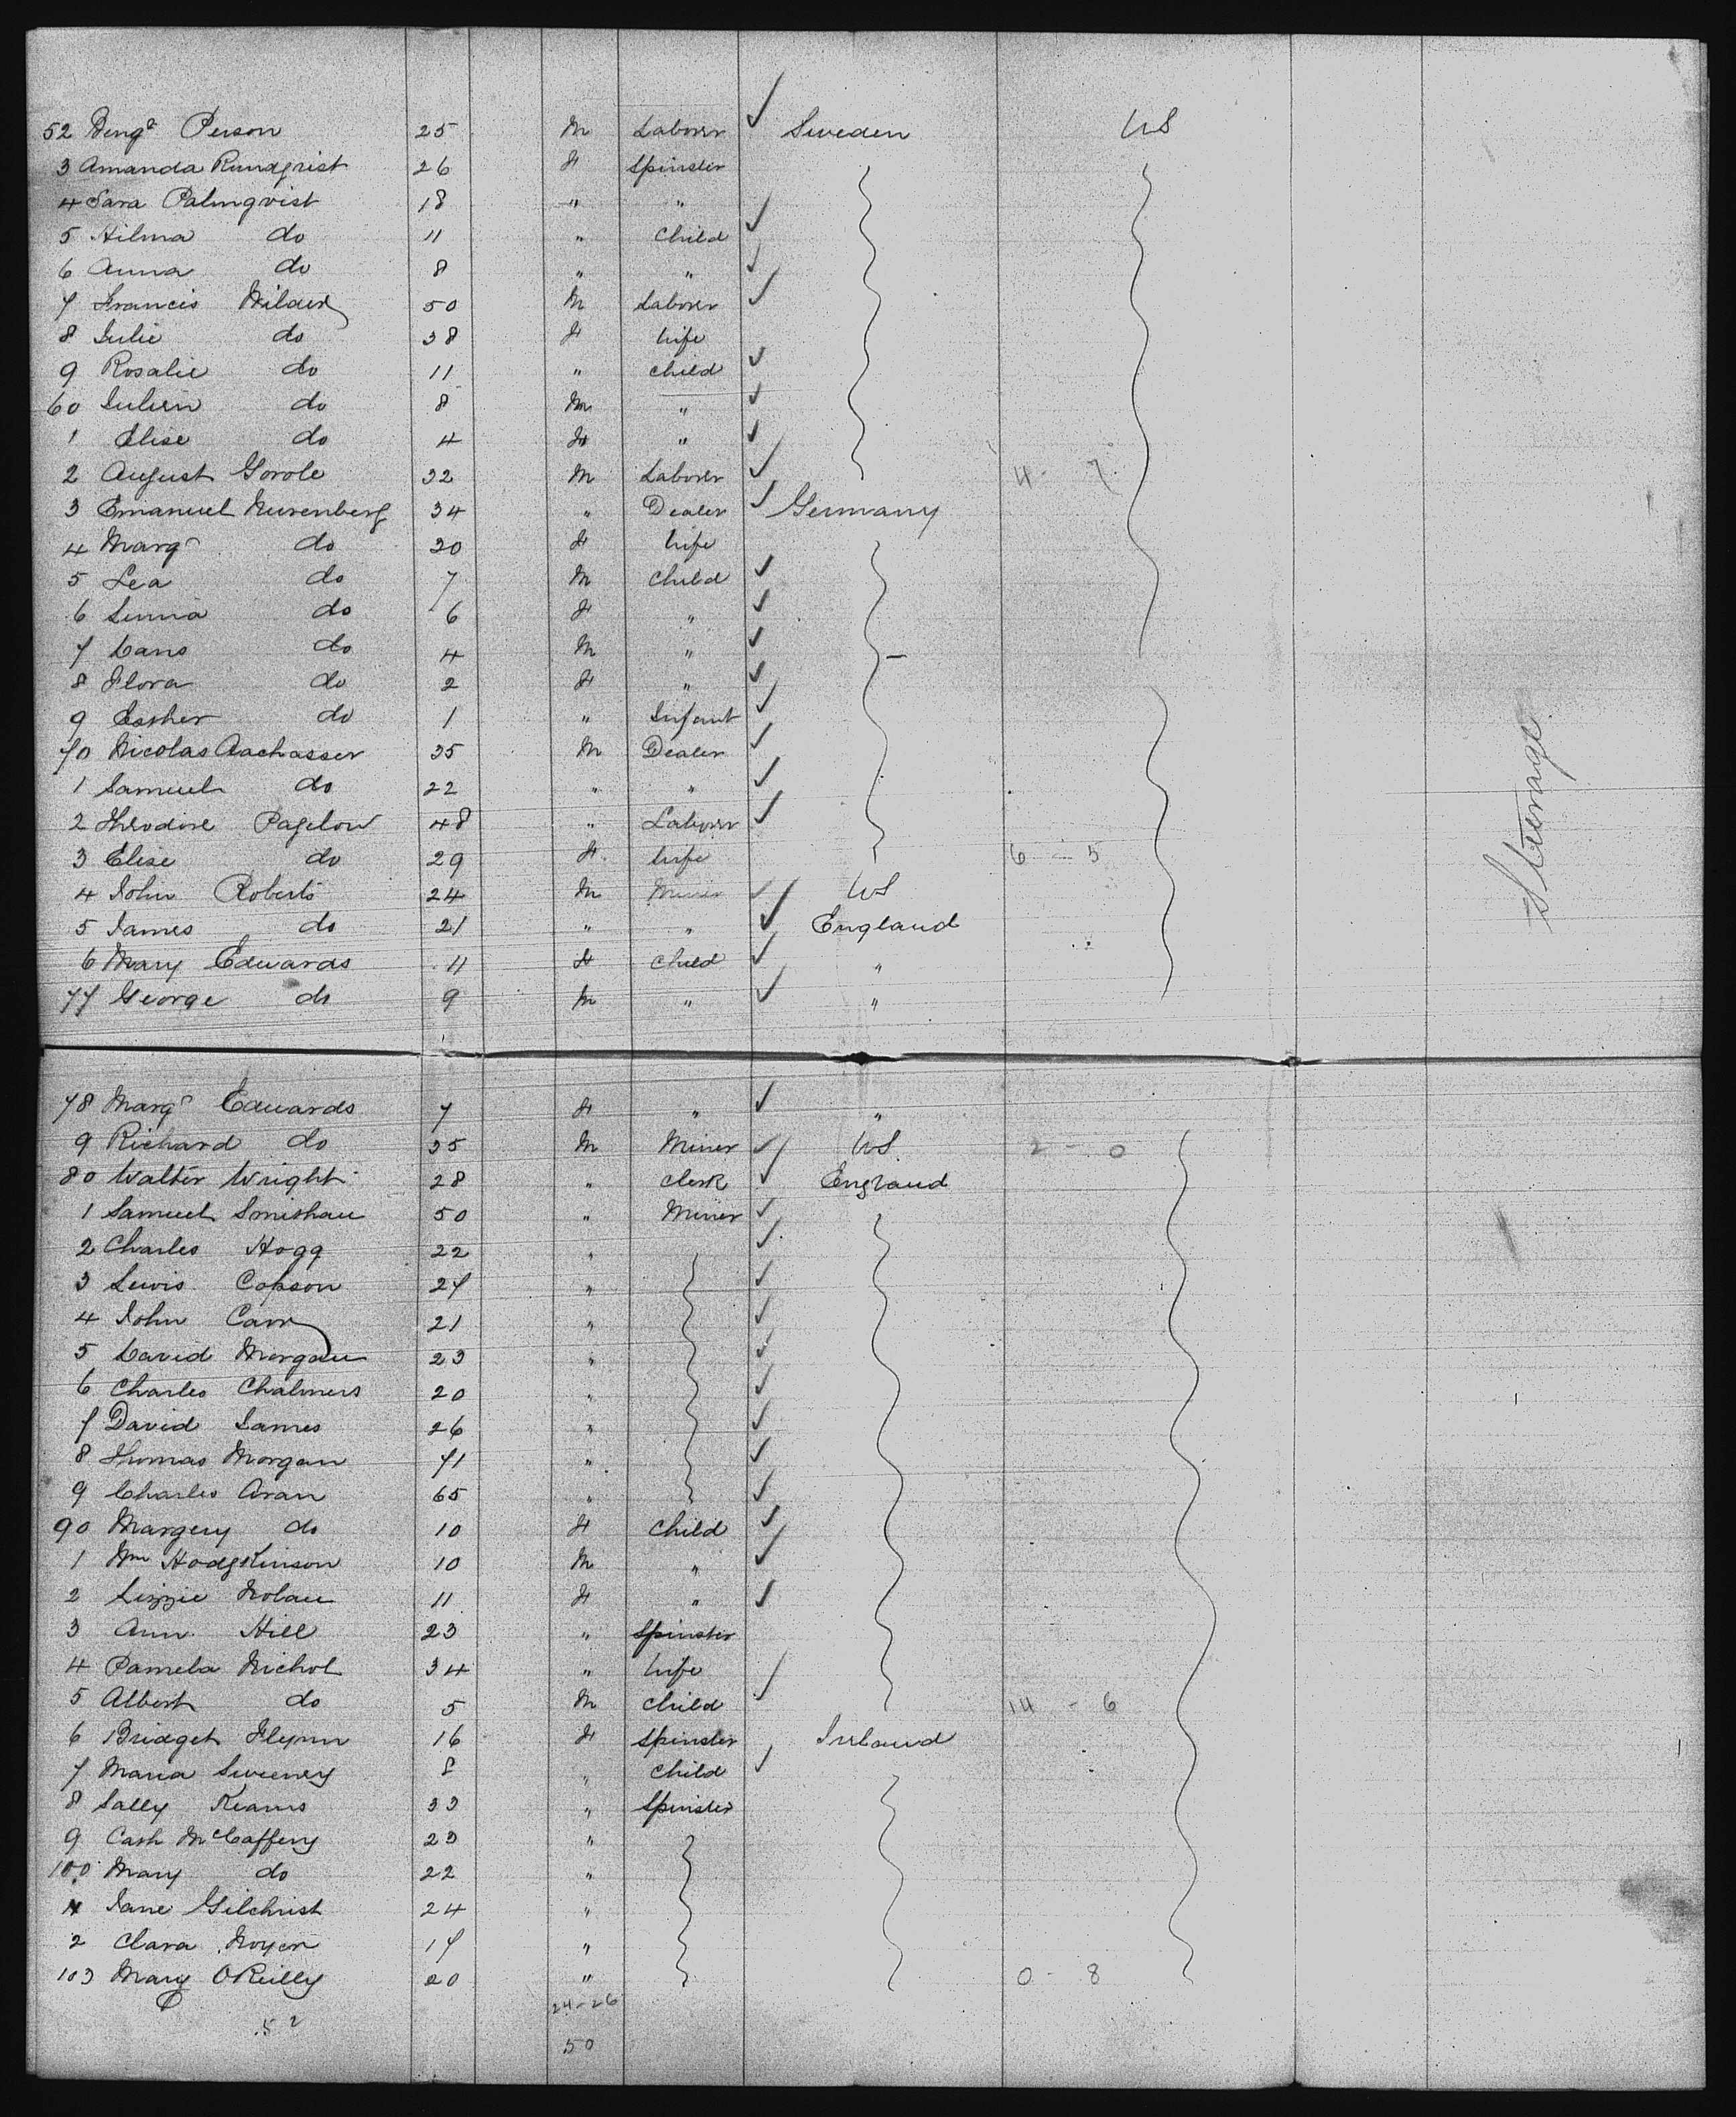 52 Bengt Person 25 M Laborer ✓ Sweden US
3 Amanda Rundqvist 26 F Spinster
4 Sara Palmqvist 18 " "
5 Hilma do 11 " Child ✓
6 Anna do 8 " " ✓
7 Francis 50 M Laborer ✓
8 Julie do 38 F Wife
9 Rosalie do 11 " Child ✓
60 Julien do 8 M " ✓
1 Elise do 4 F " ✓
2 August Gorole 32 M Laborer ✓ 4 - 7
3 Emanuel Nurenberg 34 " Dealer ✓ Germany
4 Margt do 30 F Wife
5 Lea do 7 M Child ✓
6 do 6 F " ✓
7 do 4 M " ✓
8 Flora do 2 F " ✓
9 Esther do 1 " Infant ✓
70 Nicolas Aachasser 35 M Dealer ✓
1 Samuel do 22 " " ✓
2 Theodore Pagelow 48 " Laborer ✓
3 Elise do 29 F Wife 6 - 5
4 John Roberts 24 M Miner ✓ US
5 James do 21 " " ✓ England
6 Mary Edwards 11 F Child ✓ "
77 George do 9 M " ✓ "
Steerage
78 Margt Edwards 7 F " ✓ "
9 Richard do 35 M Miner ✓ US 2 - 0
80 Walter Wright 28 " Clerk ✓ England
1 Samuel 50 " Miner ✓
2 Charles Hogg 22 " ✓
3 Lewis Copson 27 " ✓
4 John Carr 21 " ✓
5 David Morgan 23 " ✓
6 Charles Chalmers 20 " ✓
7 David James 26 " ✓
8 Thomas Morgan 41 " ✓
9 Charles Aran 65 " ✓
90 Margery do 10 F Child ✓
1 Wm Hodgkinson 10 M " ✓
2 Lizzie Nolan 11 F " ✓
3 Ann Hill 23 " Spinster
4 Pamela Nichol 34 " Wife
5 Albert do 5 M Child ✓ 14 - 6
6 Bridget Flynn 16 F Spinster Ireland
7 Maria Sweeney 8 " Child ✓
8 Sally Kearns 33 " Spinster
9 Cath McCaffery 23 "
100 Mary do 22 "
1 Jane Gilchrist 24 "
2 Clara 17 "
103 Mary OReilly 20 " 0 - 8
24-26
52
50